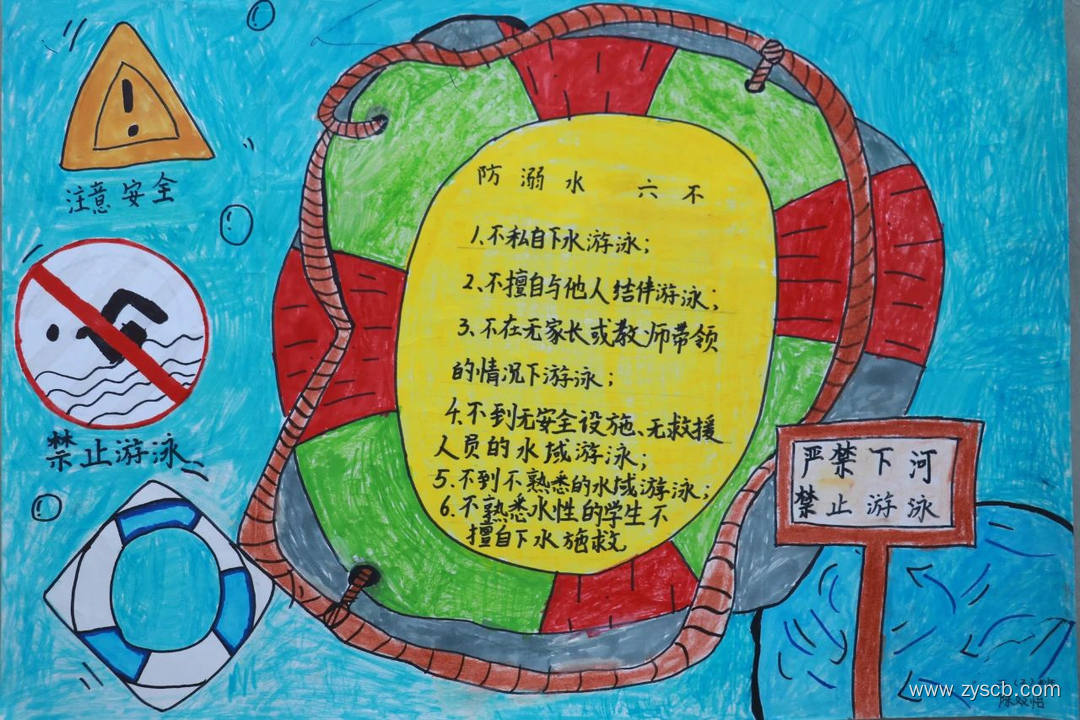 注意安全
禁止游泳
防溺水 六不
1.不私自下水游泳;
2.不擅自与他人结伴游泳;
3.不在无家长或教师带领
的情况下游泳;
4.不到无安全设施、无救援
人员的水域游泳;
5.不到不熟悉的水域游泳;
6.不熟悉水性的学生不
擅自下水施救
严禁下河
禁止游泳
www.zyscb.com